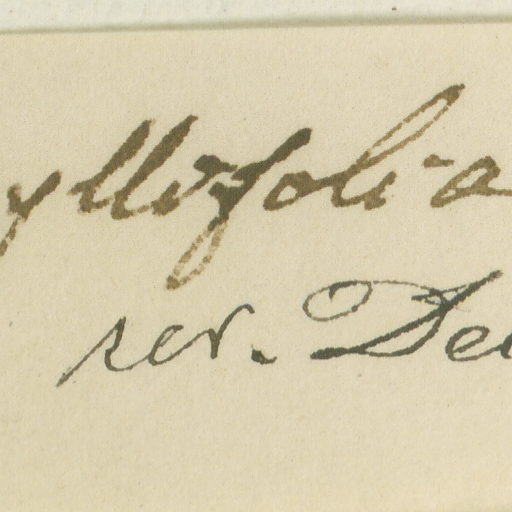 yllifolia
rev. De